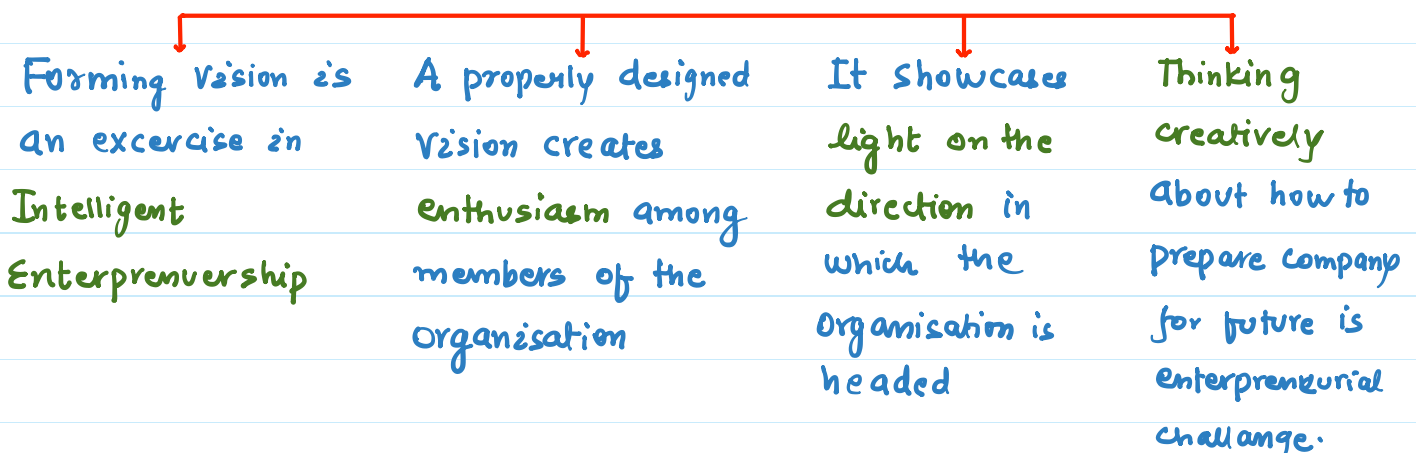 Forming Vision is
an excercise in
Intelligent
Enterprenuership
A properly designed
Vision creates
enthusiasm among
members of the
organisation
It showcases
light on the
direction in
which the
Organisation is
headed
Thinking
creatively
about how to
prepare company
for future is
enterpreneurial
challange.